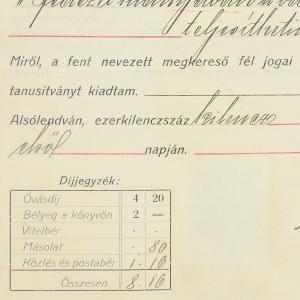 teljesíthető
Miről, a fent nevezett megkereső fél jogai
tanusitványt kiadtam.
Alsólendván, ezerkilenczszáz kilencz
első napján.
Díjjegyzék:
Óvásdíj 4 20
Bélyeg a könyvön 2 —
Vitelbér . .
Másolat . 80
Közlés és postabér 1. 10
Összesen 8. 10